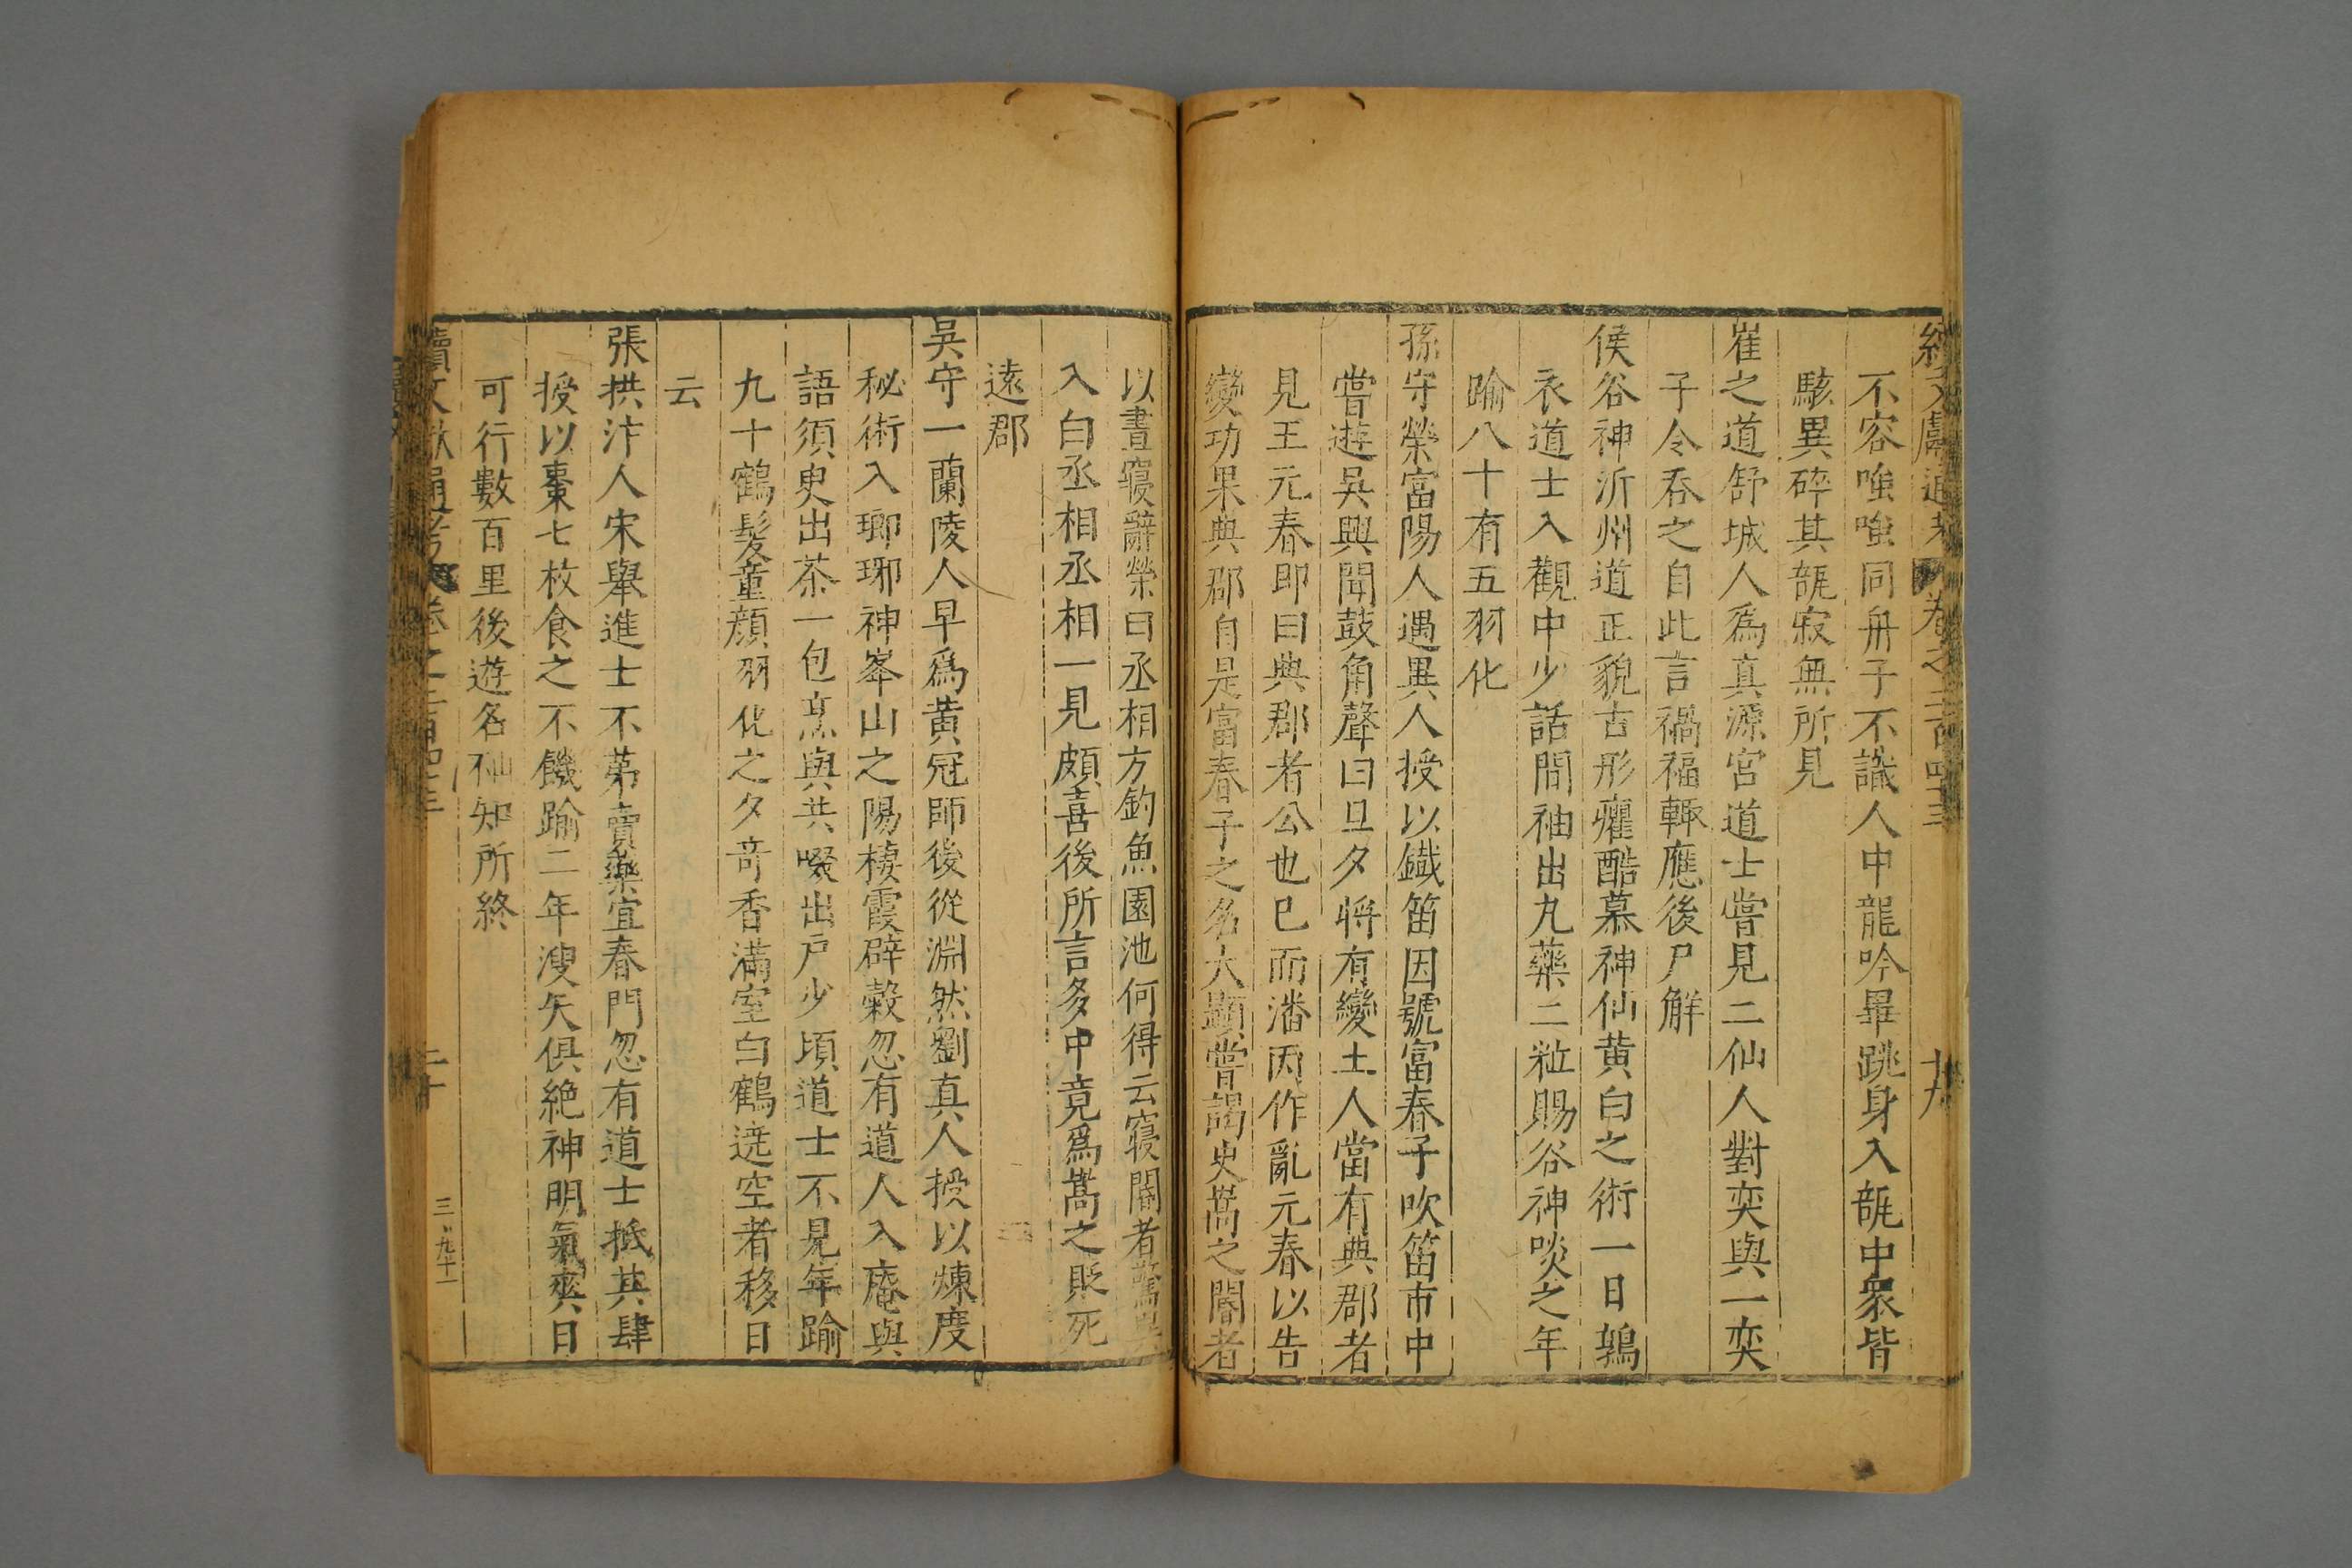 續文獻通考 卷之二百四十三 十九
不容嗤嗤同舟子不識人中龍吟畢跳身入瓶中衆皆
駭異碎其瓶寂無所見
崔之道舒城人爲真源宮道士嘗見二仙人對奕與一奕
子令吞之自此言禍福輒應後尸解
侯谷神沂州道正貌古形癯酷慕神仙黄白之術一日鶉
衣道士入觀中少話間袖出丸藥二粒賜谷神啖之年
踰八十有五羽化
孫守榮富陽人遇異人授以鐵笛因號富春子吹笛市中
嘗遊吳興聞鼓角聲曰旦夕將有變土人當有典郡者
見王元春即曰典郡者公也已而潘丙作亂元春以告
變功果典郡自是富春子之名大顯嘗謁史嵩之閽者
以晝寢辭榮曰丞相方釣魚園池何得云寢閽者驚異
入白丞相丞相一見頗喜後所言多中竟爲嵩之貶死
遠郡
吳守一蘭陵人早爲黄冠師後從淵然劉真人授以煉度
秘術入瑯琊神峯山之陽棲霞辟穀忽有道人入庵與
語須臾出茶一包烹與共啜出戶少頃道士不見年踰
九十鶴髮童顔羽化之夕奇香滿室白鶴遶空者移日
云
張拱汴人宋舉進士不第賣藥宜春門忽有道士抵其肆
授以棗七枚食之不饑踰二年溲矢俱絶神明氣爽日
可行數百里後遊名山知所終
續文獻通考 卷之二百四十三 二十